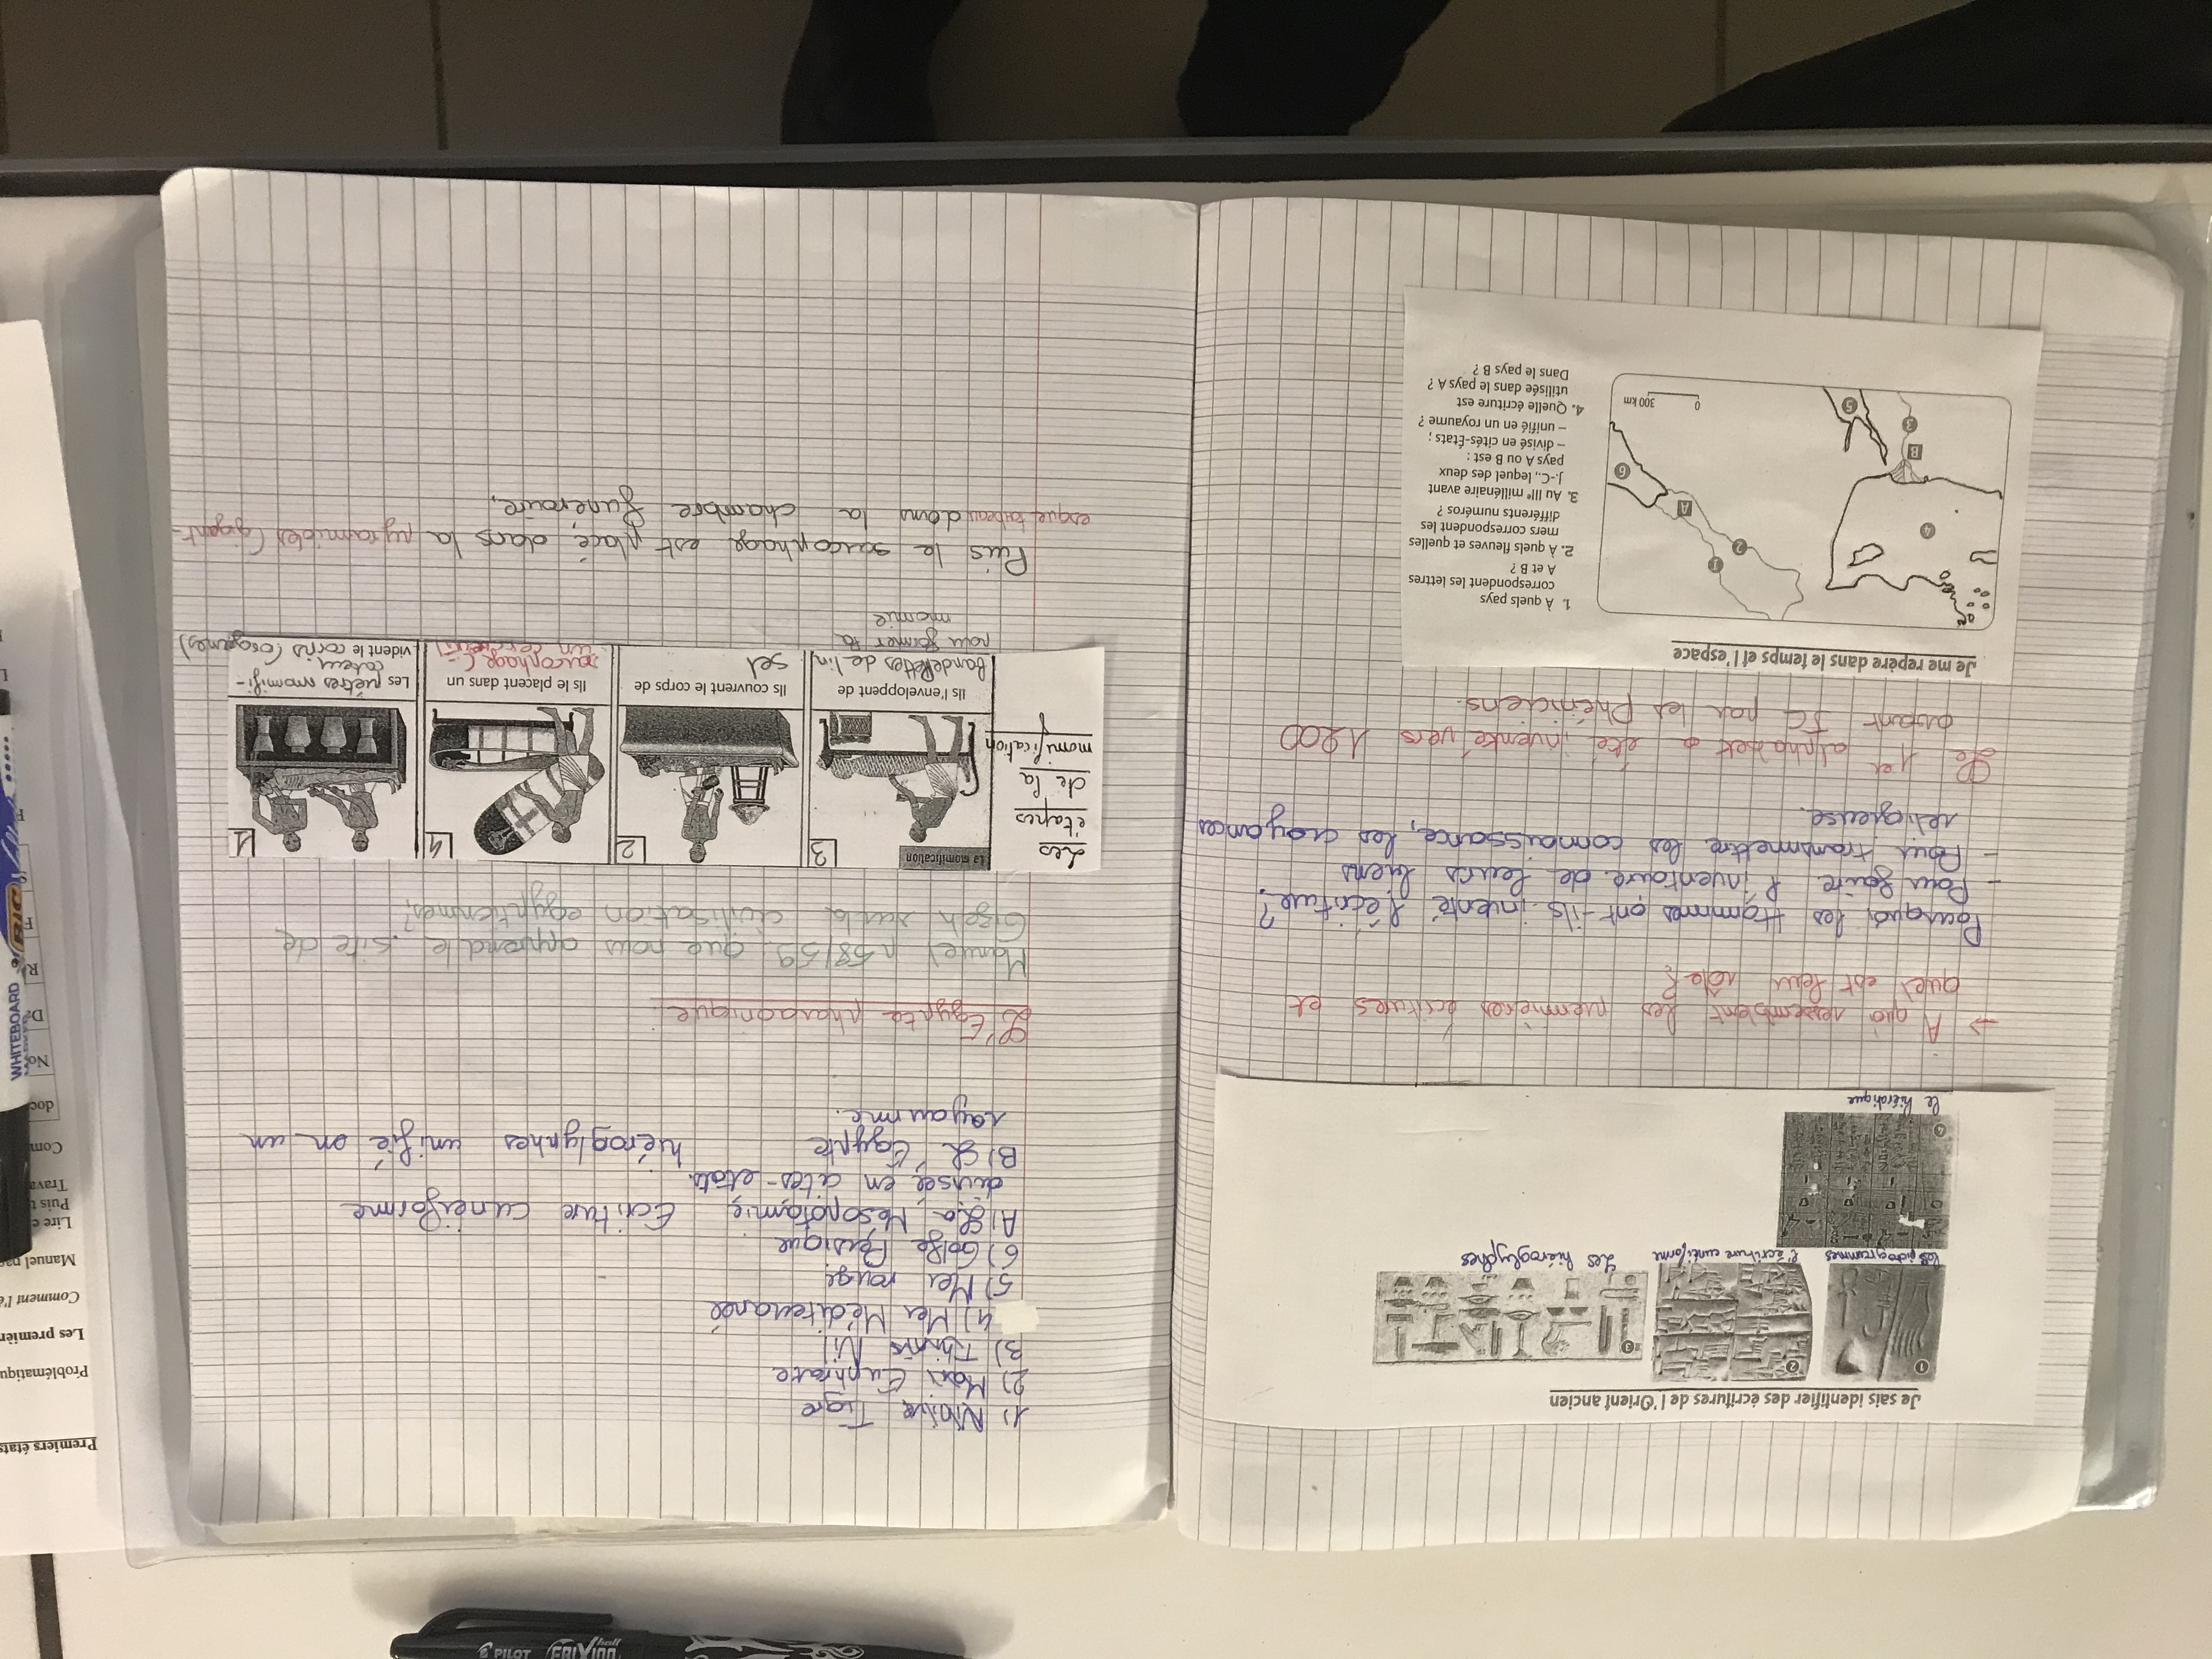 Je sais identifier des écritures de l'Orient ancien
1
2
3
les pictogrammes
l'écriture cunéiforme
Les hiéroglyphes
4
le hiératique
→ A quoi ressemblent les premmières écritures et
quel est leur rôle?
Pourquoi les Hommes ont-ils inventé l'écriture?
- Pour faire l'inventaire de leurs biens
- Pour transmettre les connaissance, les croyances
religieuse.
Le 1er alphabet a été inventé vers 1200
avant JC par les Phéniciens.
Je me repère dans le temps et l'espace
1
2
4
A
6
B
3
5
0 300 km
1. À quels pays
correspondent les lettres
A et B ?
2. À quels fleuves et quelles
mers correspondent les
différents numéros ?
3. Au IIIe millénaire avant
J.-C., lequel des deux
pays A ou B est :
– divisé en cités-États ;
– unifié en un royaume ?
4. Quelle écriture est
utilisée dans le pays A ?
Dans le pays B ?
1) Ninive Tigre
2) Mari Euphrate
3) Thinis Nil
4) Mer Méditerrané
5) Mer rouge
6) Golfe Persique
A) La Mésopotamie Ecriture cunéiforme
divisée en cités-états.
B) L'Egypte hiéroglyphes unifié en un
royaume.
L'Egypte pharaonique :
Manuel p 58/59 que nous apprend le site de
Gizeh sur la civilisation egyptiennes?
Les
étapes
de la
momification
La momification
3
2
4
1
Ils l'enveloppent de
bandelettes de lin
pour former la
momie
Ils couvrent le corps de
sel
Ils le placent dans un
sarcophage (=
un cercueil)
Les prêtres momifi-
cateur
vident le corps (organes)
Puis le sarcophage est placé dans la pyramides (gigant-
esque tombeau dans la chambre funéraire.
Premiers états
Problématiqu
Les premièr
Comment l'é
Manuel pa
Lire e
Puis t
Trava
Com
doc
No
R
F
PILOT
FRIXION
ball
WHITEBOARD
BIC